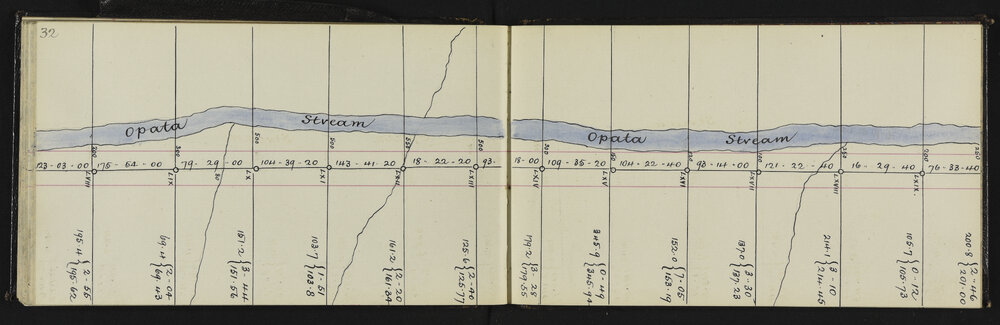 32
Opata Stream
Opata Stream
123-03-00 175-54-00 79-29-00 104-39-20 143-41-20 18-22-20 93-
13-00 109-35-20 104-22-40 93-14-00 121-22-40 16-29-40 76-33-40
LXIII LIX LX LXI LXII LXIII
LXIV LXV LXVI LXVII LXVIII LXIX
195.4 { 2-55 195.62
69.4 { 2-04 69.43
151.2 { 3-44 151.56
103.7 { 1-51 103.8
161.2 { 2-20 161.34
125.6 { 2-40 125.77
179.2 { 3-28 179.55
345.9 { 0-49 345.94
152.0 { 7-05 153.19
137.0 { 3-30 137.23
214.1 { 3-10 214.45
105.7 { 0-12 105.73
200.8 { 2-46 201.00